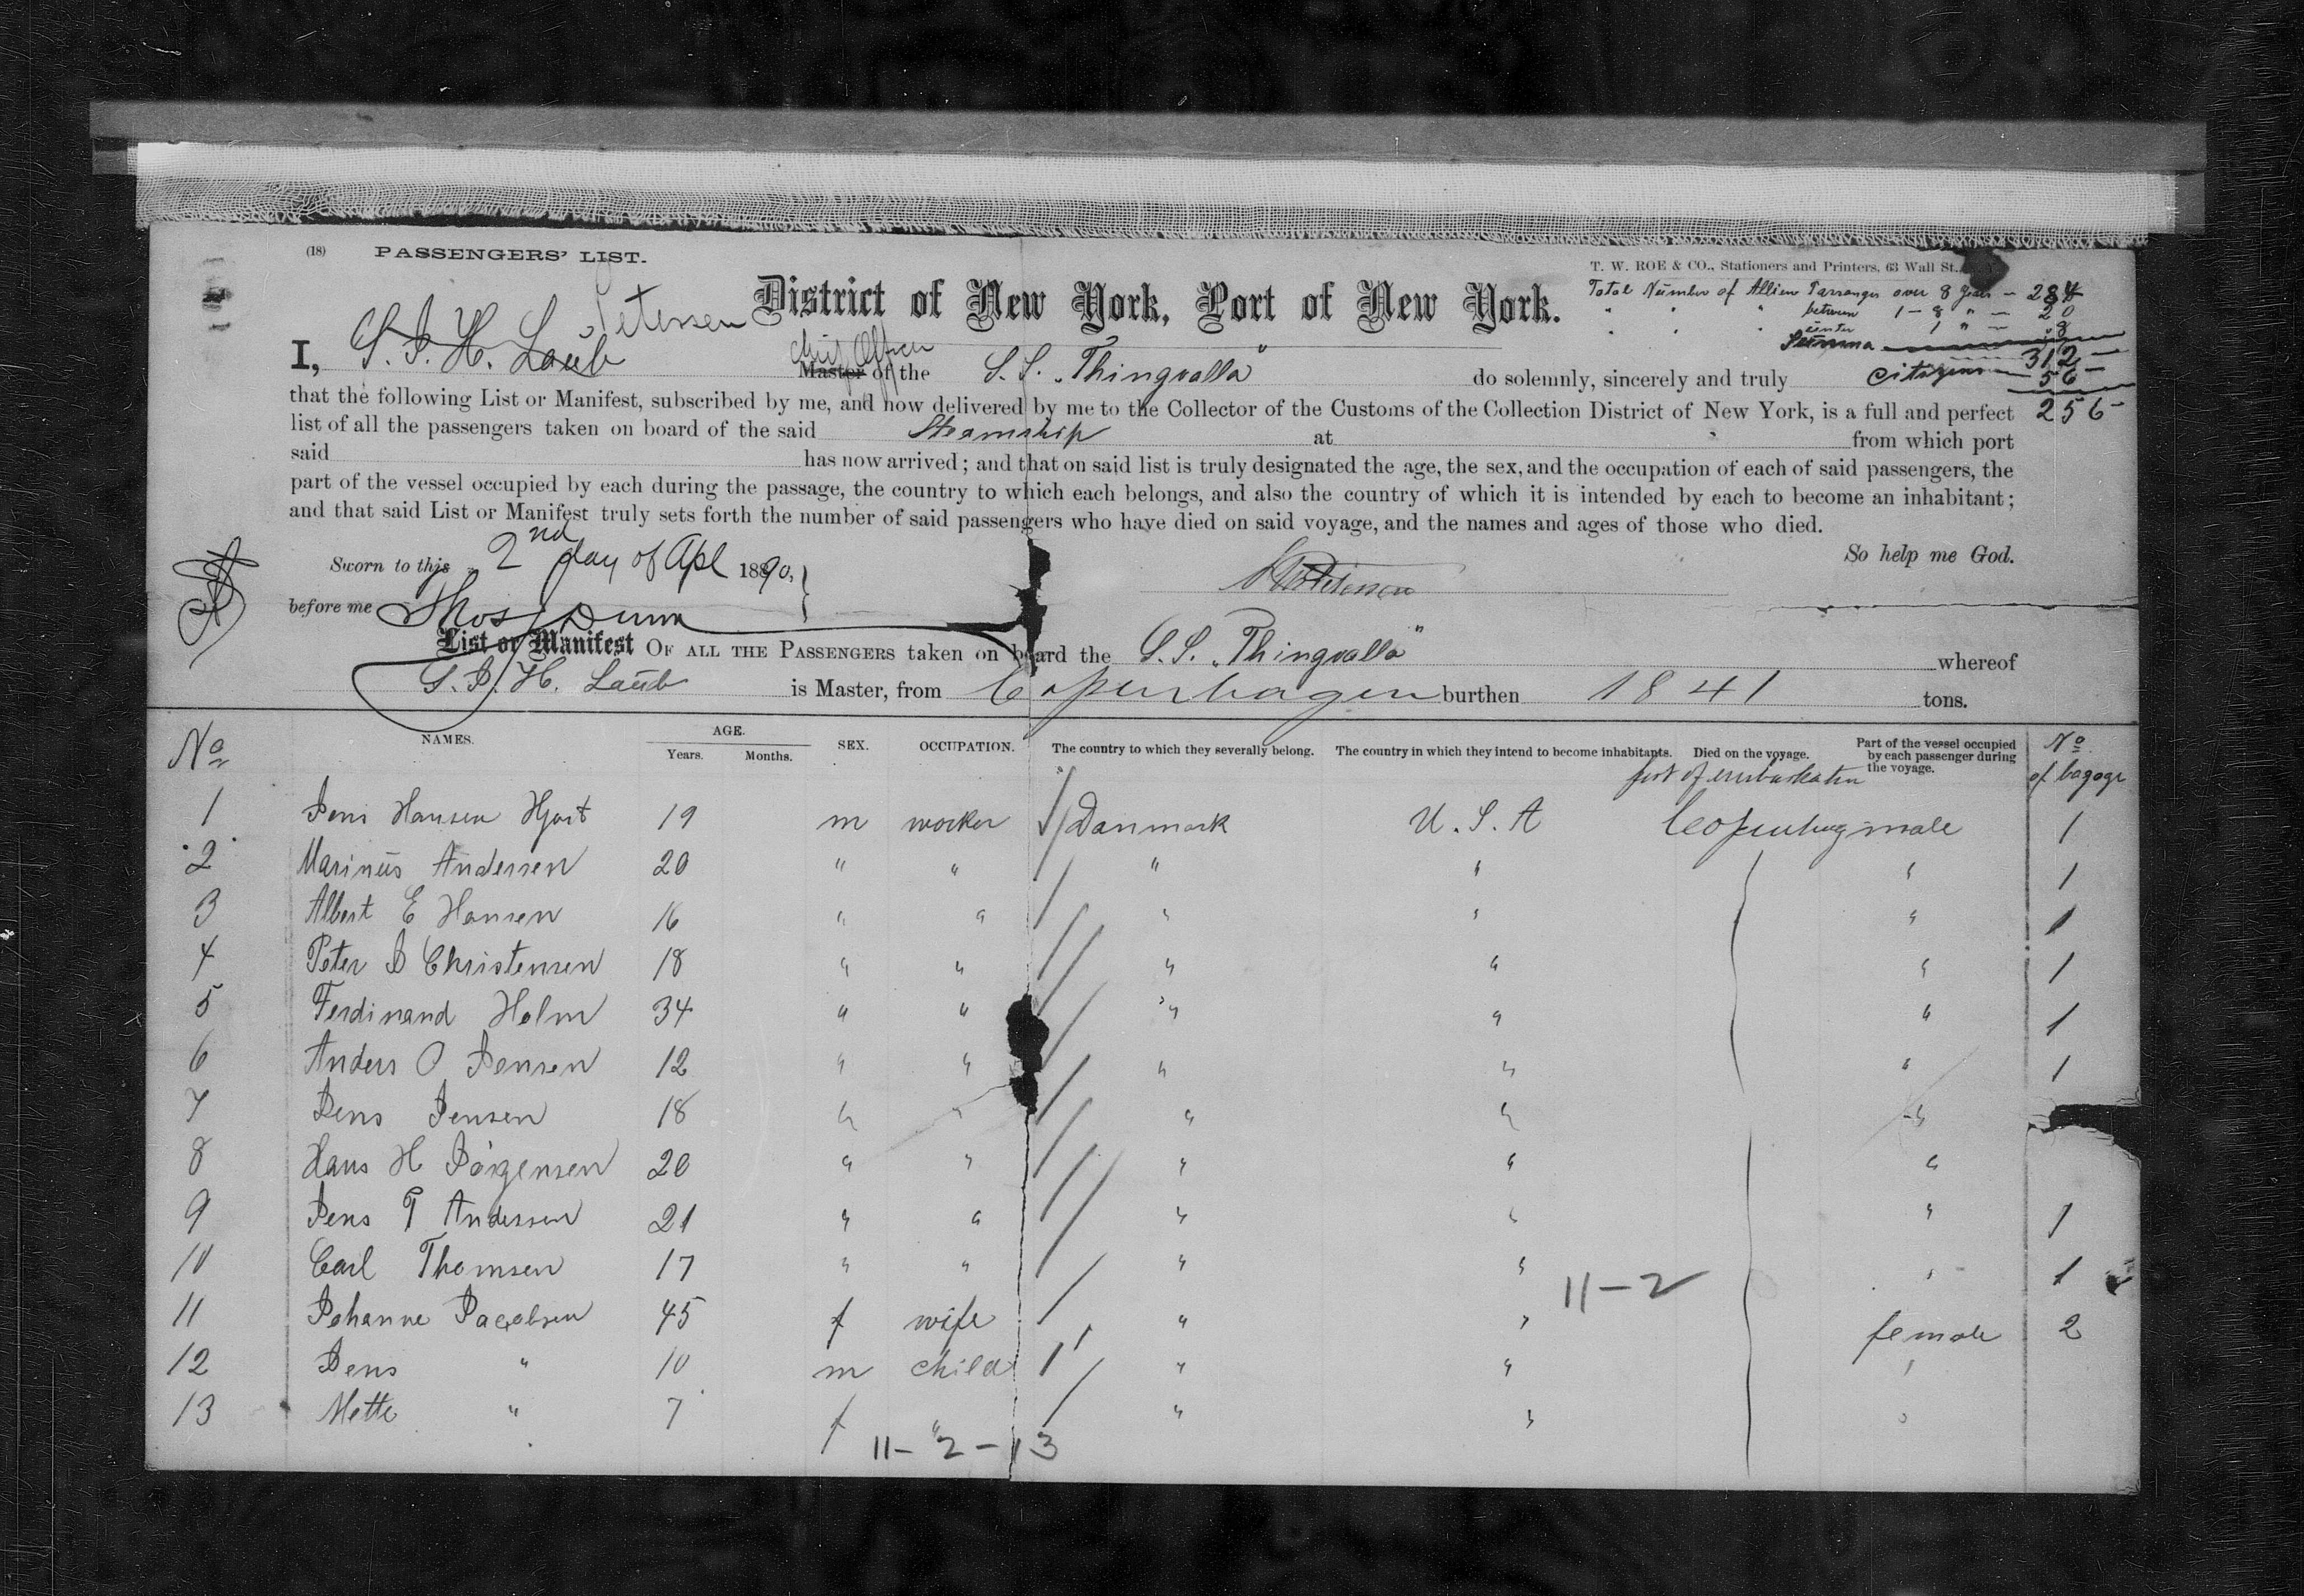 (18) PASSENGERS' LIST.
T. W. ROE & CO., Stationers and Printers, 63 Wall St.,
District of New York, Port of New York.
Total Number of Allien Passanger over 8 Years – 284
" " " between 1 – 8 " – 20
" " " under 1 " – 8
Summa 312 –
Petersen
I, S. J. H. Laub Chief Officer Master of the S. S. „Thingvalla" do solemnly, sincerely and truly
citizens 56 –
that the following List or Manifest, subscribed by me, and now delivered by me to the Collector of the Customs of the Collection District of New York, is a full and perfect 256 –
list of all the passengers taken on board of the said Steamship at from which port
said has now arrived; and that on said list is truly designated the age, the sex, and the occupation of each of said passengers, the
part of the vessel occupied by each during the passage, the country to which each belongs, and also the country of which it is intended by each to become an inhabitant;
and that said List or Manifest truly sets forth the number of said passengers who have died on said voyage, and the names and ages of those who died.
So help me God.
Sworn to this 2nd day of Apl 1890, Petersen
before me Thos J Dunn
List or Manifest OF ALL THE PASSENGERS taken on board the S. S. „Thingvalla" whereof
S. J. H. Laub is Master, from Copenhagen burthen 1841 tons.
No NAMES. AGE. Years. Months. SEX. OCCUPATION. The country to which they severally belong. The country in which they intend to become inhabitants. Died on the voyage. Part of the vessel occupied by each passenger during the voyage. No of bagage
port of embarkation
1 Jens Hansen Hjort 19 m worker Danmark U. S. A Copenhag male 1
2 Marinus Andersen 20 " " " " " 1
3 Albert E Hansen 16 " " " " " 1
4 Peter J Christensen 18 " " " " " 1
5 Ferdinand Holm 34 " " " " " 1
6 Anders O Jensen 12 " " " " " 1
7 Jens Jensen 18 " " " " "
8 Hans H Jörgensen 20 " " " " "
9 Jens P Andersen 21 " " " " " 1
10 Carl Thomsen 17 " " " " " 1
11-2
11 Johanne Jacobsen 45 f wife " " female 2
12 Jens " 10 m child " " "
13 Mette " 7 f " " " "
11-2-13